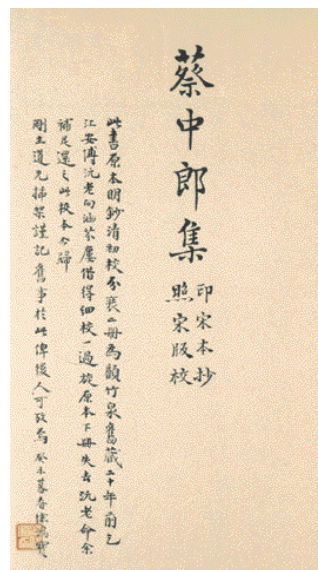 蔡中郎集
印宋本抄
照宋版校
此書原本明鈔清初校分裝二冊為顧竹泉舊藏二十年前乞
江安傅沅老向涵芬廔借得細校一過旋原本下冊失去沅老命余
補足還之此校本今歸
剛主道兄插架謹記舊事於此俾後人可攷焉 癸未暮春